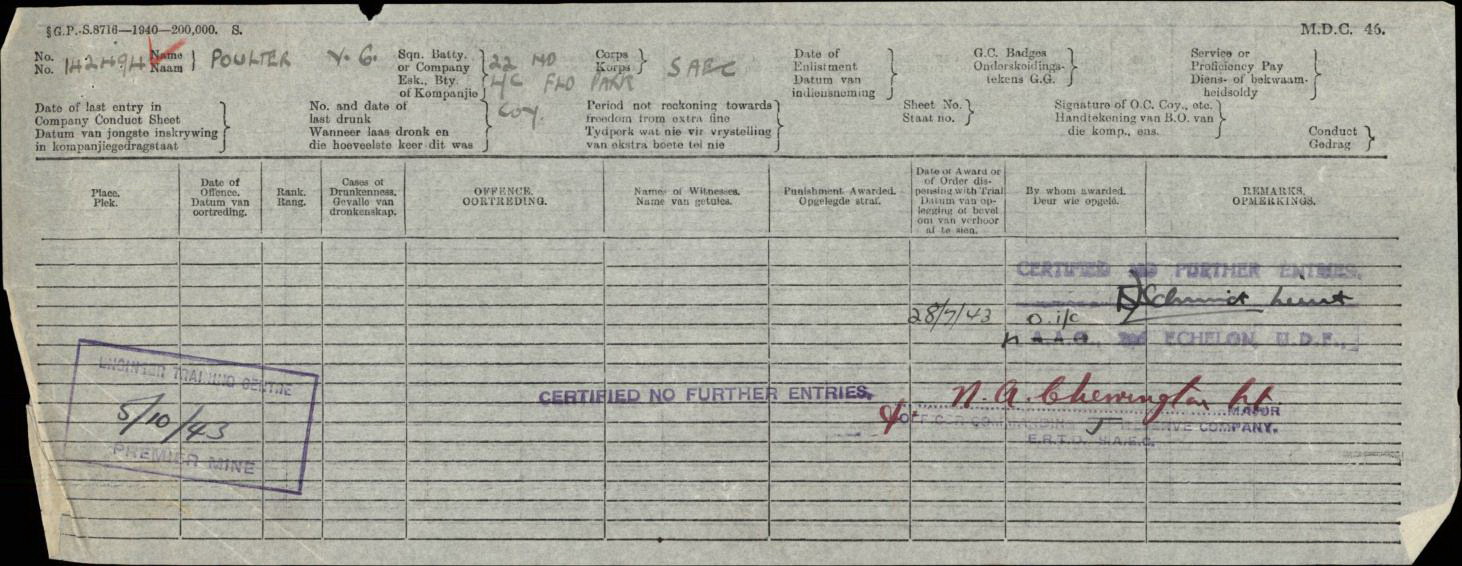 §G.P.-S.8716—1940—200,000. S.
M.D.C. 46.
No. 142494 Name POULTER V. G.
No. Naam
Sqn. Batty.
or Company
Esk., Bty.
of Kompanjie
22 MD
H/C FLD PARK
Coy.
Corps
Korps
SAEC
Date of
Enlistment
Datum van
indiensneming
G.C. Badges
Onderskeidings-
tekens G.G.
Service or
Proficiency Pay
Diens- of bekwaam-
heidsoldy
Date of last entry in
Company Conduct Sheet
Datum van jongste inskrywing
in kompanjiegedragstaat
No. and date of
last drunk
Wanneer laas dronk en
die hoeveelste keer dit was
Period not reckoning towards
freedom from extra fine
Tydperk wat nie vir vrystelling
van ekstra boete tel nie
Sheet No.
Staat no.
Signature of O.C. Coy., etc.
Handtekening van B.O. van
die komp., ens.
Conduct
Gedrag
Place.
Plek.
Date of
Offence.
Datum van
oortreding.
Rank.
Rang.
Cases of
Drunkenness.
Gevalle van
dronkenskap.
OFFENCE.
OORTREDING.
Names of Witnesses.
Name van getuies.
Punishment Awarded.
Opgelegde straf.
Date of Award or
of Order dis-
pensing with Trial
Datum van op-
legging of bevel
om van verhoor
af te sien.
By whom awarded.
Deur wie opgelê.
REMARKS.
OPMERKINGS.
CERTIFIED NO FURTHER ENTRIES.
Schmidt Lieut
28/7/43 O. i/c
A.A.G., 2nd ECHELON, U.D.F.,
ENGINEER TRAINING CENTRE
5/10/43
PREMIER MINE
CERTIFIED NO FURTHER ENTRIES.
N. A. Cherrington Lt
MAJOR
OFFICER COMMANDING RESERVE COMPANY.
E.R.T.D. S.A.E.C.